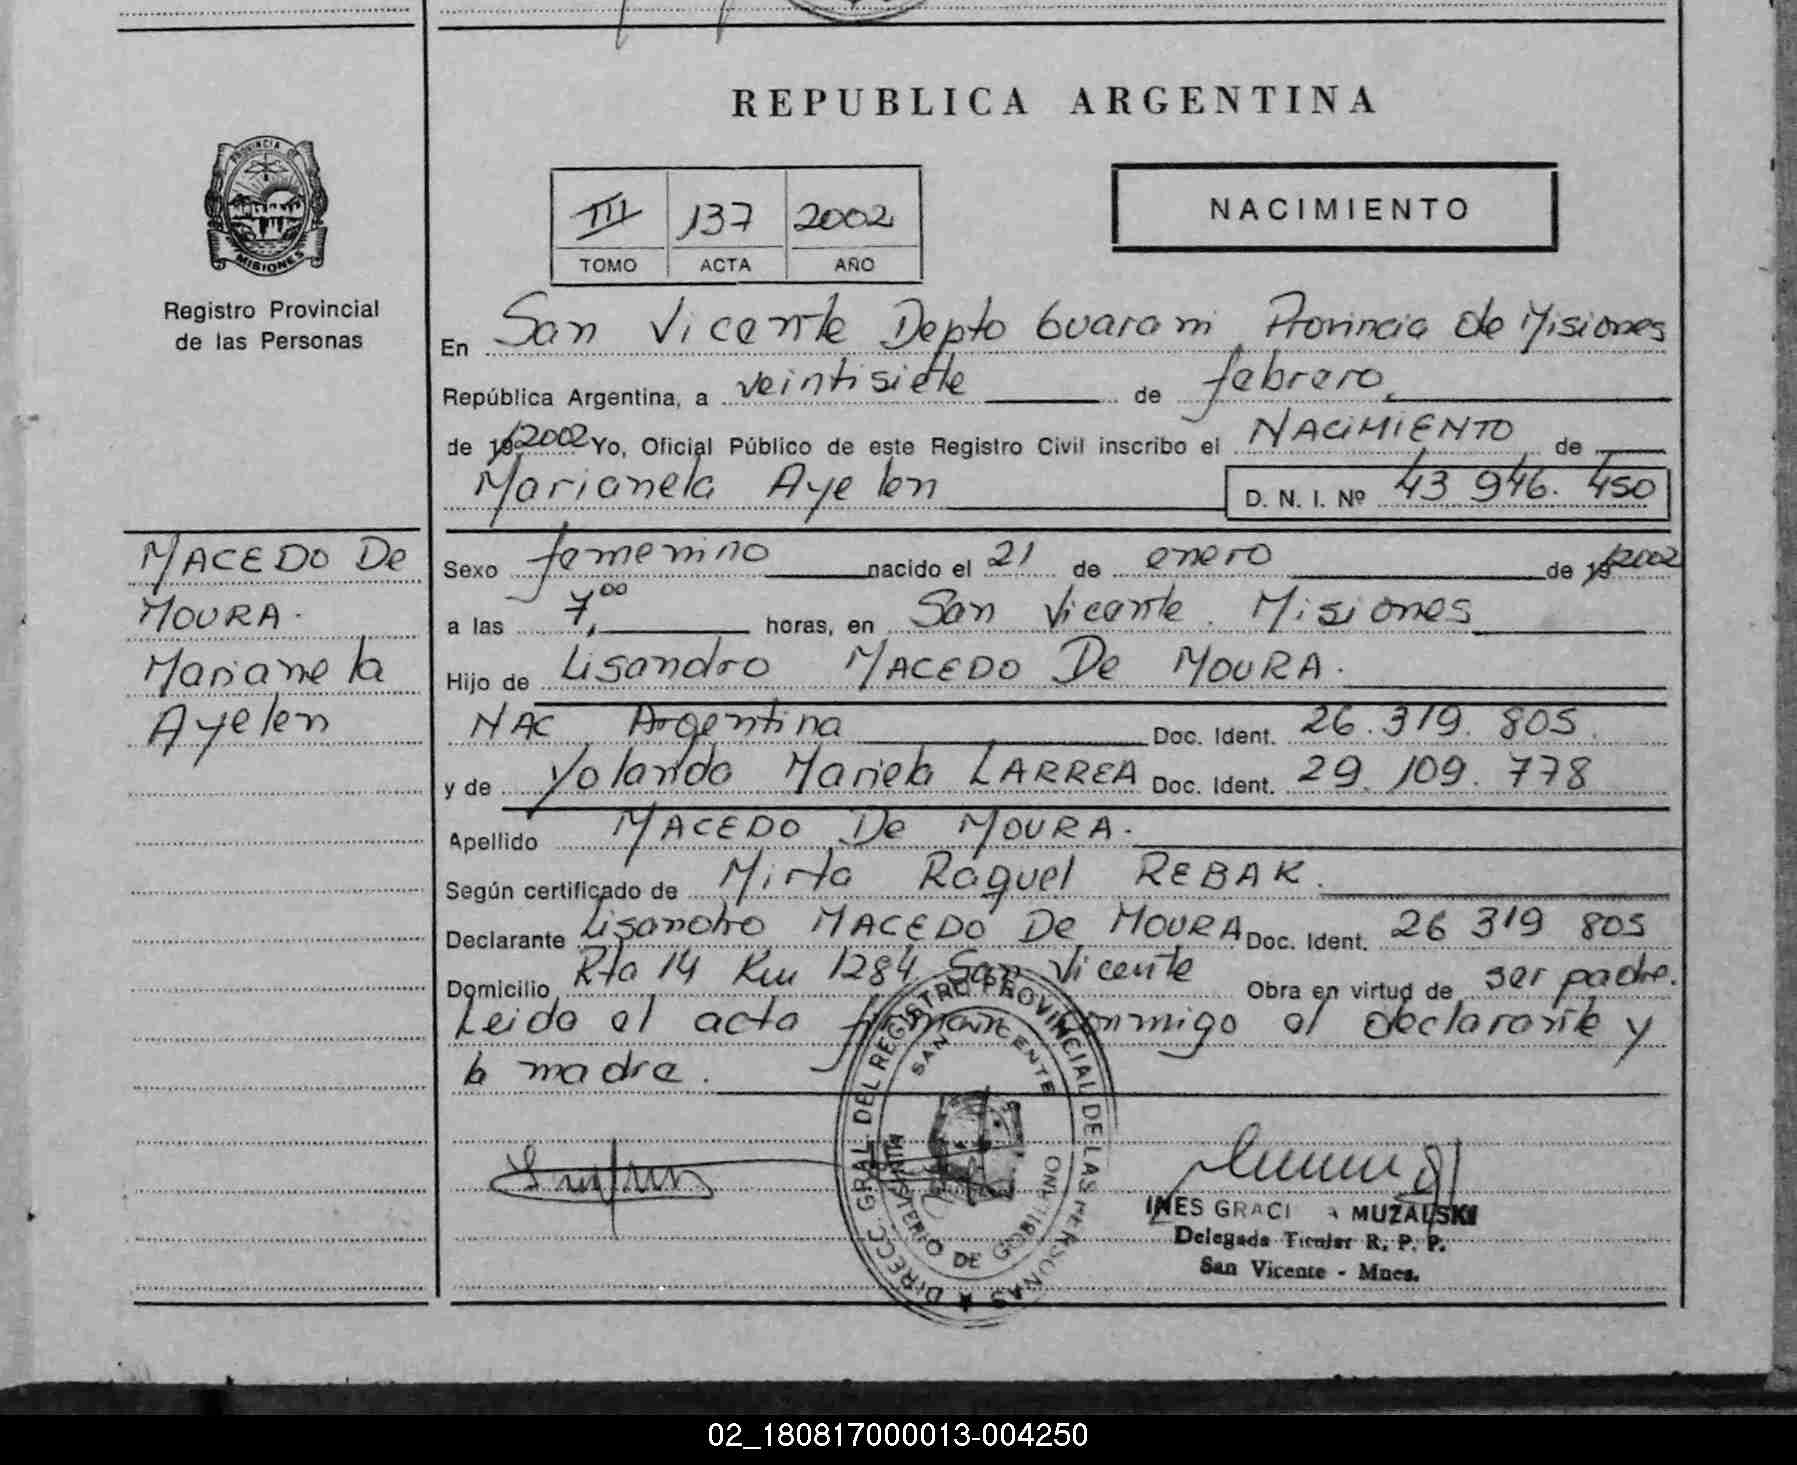 REPUBLICA ARGENTINA
PROVINCIA DE
MISIONES
Registro Provincial
de las Personas
III 137 2002
TOMO ACTA AÑO
NACIMIENTO
En San Vicente Depto Guarani Provincia de Misiones
República Argentina, a veintisiete de febrero
de 19 2002 Yo, Oficial Público de este Registro Civil inscribo el NACIMIENTO de
Marianela Ayelen D. N. I. Nº 43 946. 450
MACEDO De
MOURA.
Marianela
Ayelen
Sexo femenino nacido el 21 de enero de 19 2002
a las 7,00 horas, en San Vicente. Misiones
Hijo de Lisandro MACEDO De MOURA.
NAC Argentina Doc. Ident. 26.319. 805.
y de Yolanda Mariela LARREA Doc. Ident. 29. 109. 778
Apellido MACEDO De MOURA.
Según certificado de Mirta Raquel REBAK.
Declarante Lisandro MACEDO De MOURA Doc. Ident. 26 319 805
Domicilio Rta 14 Km 1284 San Vicente Obra en virtud de ser padre.
Leida el acta firman conmigo el declarante y
la madre.
DIRECC. GRAL. DEL REGISTRO PROVINCIAL DE LAS PERSONAS
SAN VICENTE
MINISTERIO DE GOBIERNO
INES GRACI A MUZALSKI
Delegada Titular R. P. P.
San Vicente - Mnes.
02_180817000013-004250